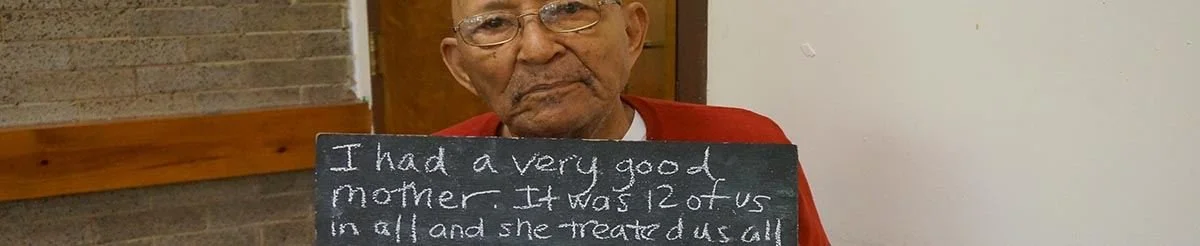 I had a very good
mother. It was 12 of us
in all and she treated us all